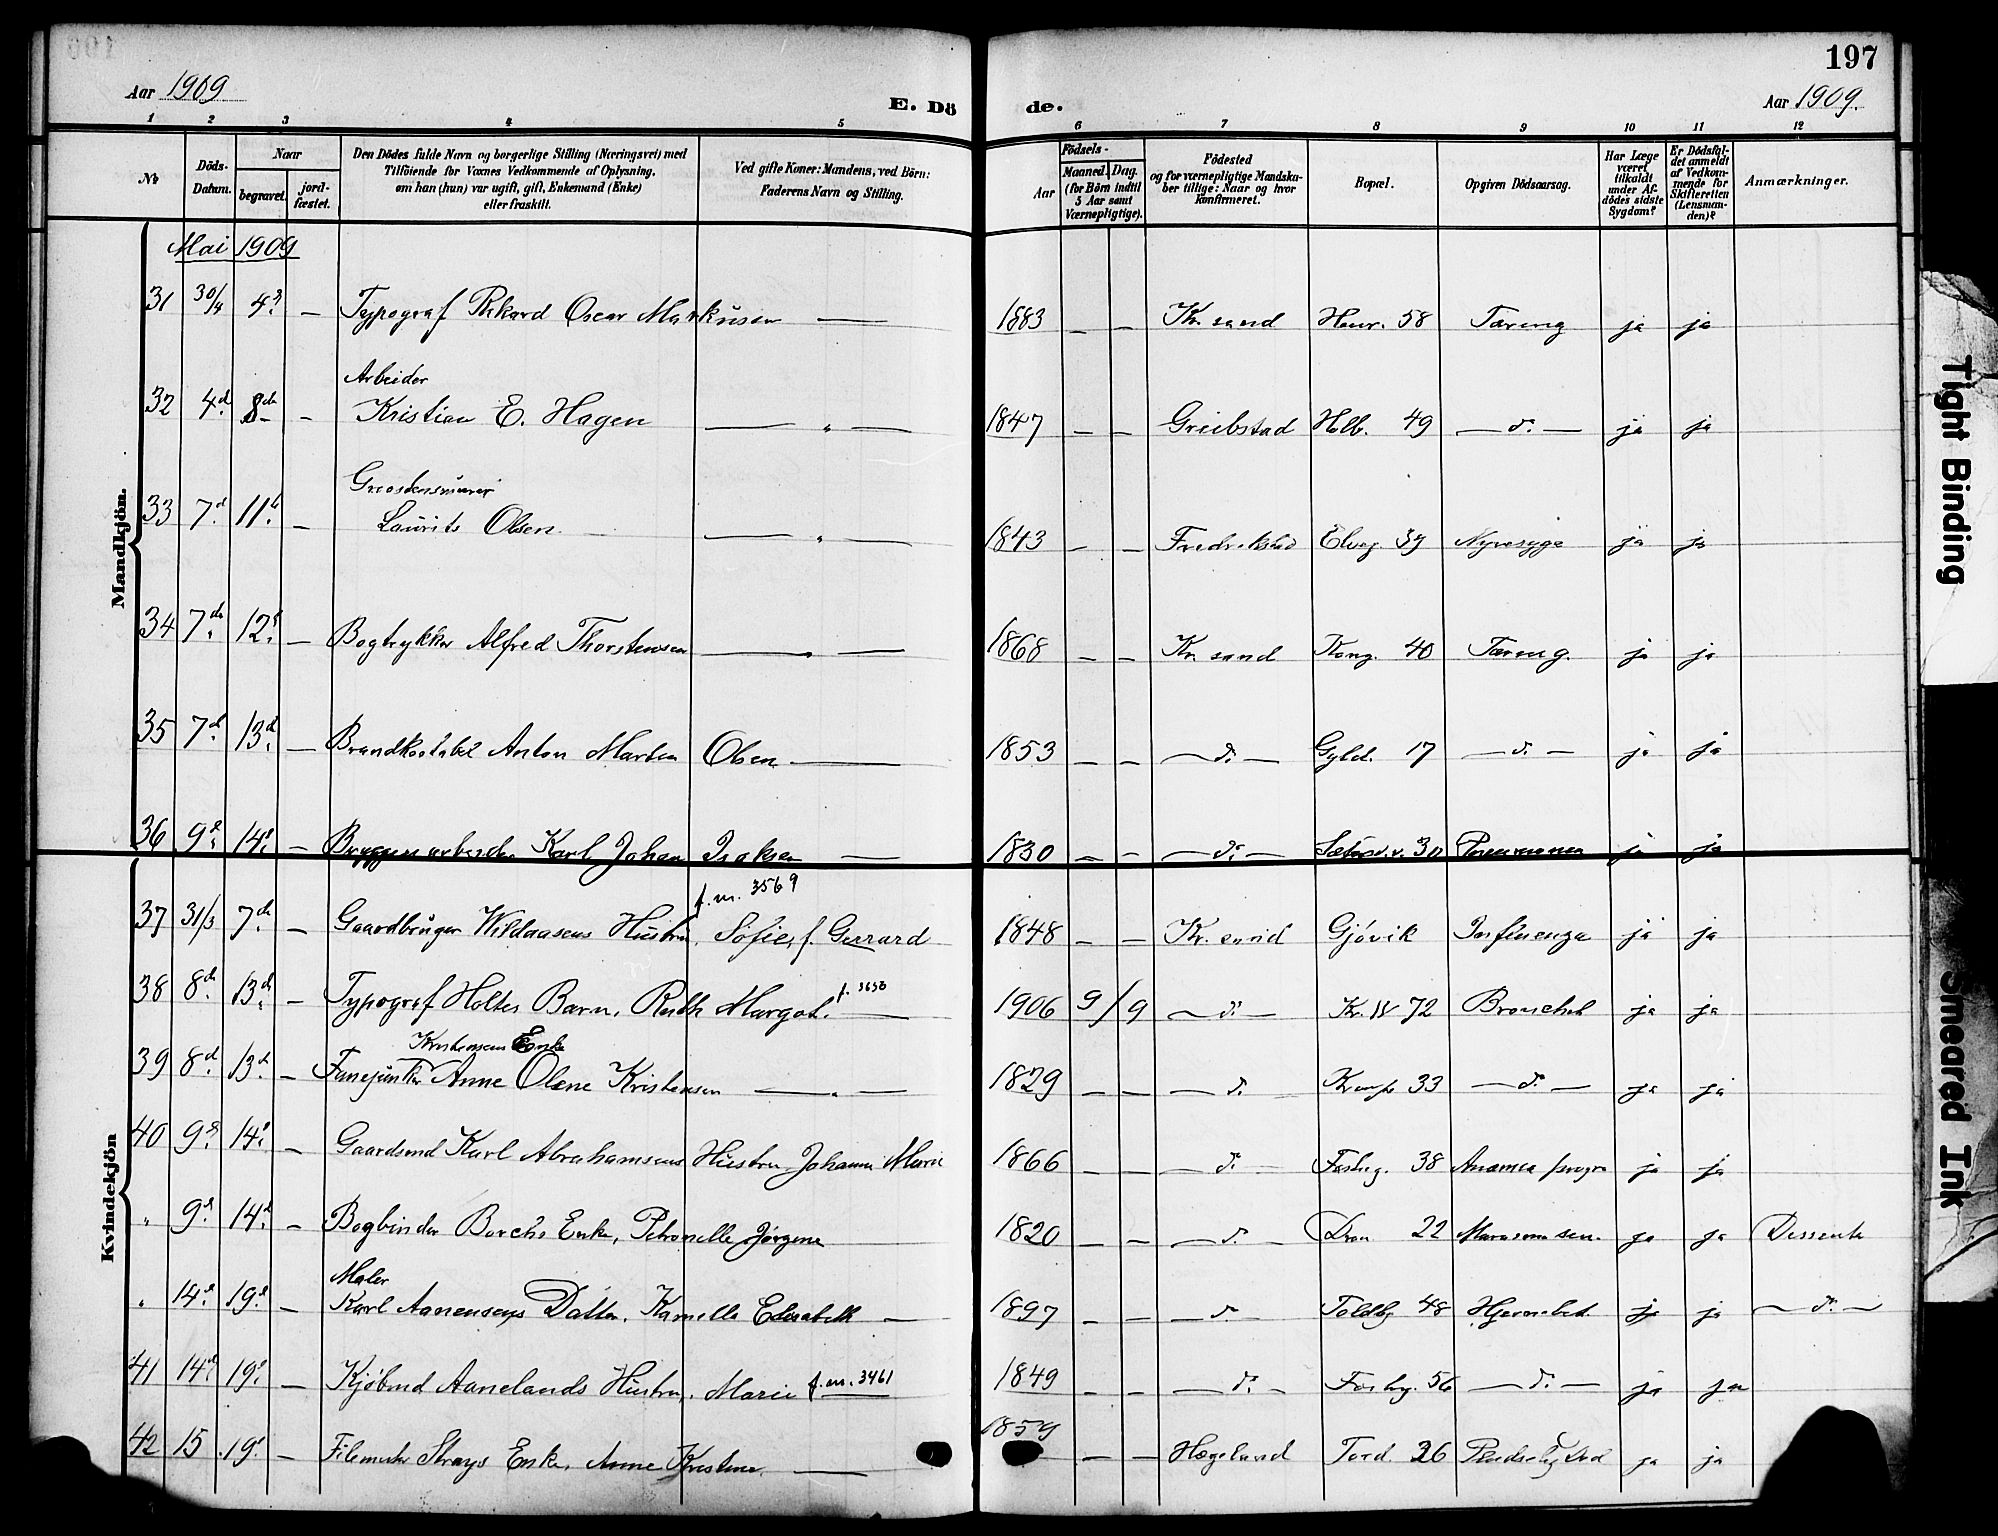 197
Aar 1909
E. Dö
de.
Aar 1909.
1 2 3 4 5 6 7 8 9 10 11 12
No
Döds-
Datum.
Naar
begravet.
jord-
fæstet.
Den Dödes fulde Navn og borgerlige Stilling (Næringsvei) med
Tilföiende for Voxnes Vedkommende af Oplysning,
om han (hun) var ugift, gift, Enkemand (Enke)
eller fraskilt.
Ved gifte Koner: Mandens, ved Börn:
Faderens Navn og Stilling.
Födsels-
Aar
Maaned. Dag.
(for Börn indtil
5 Aar samt
Værnepligtige).
Födested
og for værnepligtige Mandska-
ber tillige: Naar og hvor
konfirmeret.
Bopæl.
Opgiven Dödsaarsag.
Har Læge
været
tilkaldt
under Af-
dödes sidste
Sygdom?
Er Dödsfal-
det anmeldt
af Vedkom-
mende for
Skifteretten
(Lensman-
den)?
Anmærkninger.
Mandkjön.
Mai 1909
31 30/4 4. — Typograf Rikard Oscar Markusen — 1883 — — Kr.sand Henr. 58 Tæring ja ja
Arbeider
32 4d 8de — Kristian E. Hagen — " — 1847 — — Greibstad Holb. 49 — d. — ja ja
33 7d 11. — Laurits Olsen — " — 1843 — — Fredrikstad Elveg. 39 Nyresyge ja ja
34 7de 12. — Bogtrykker Alfred Thorstensen — 1868 — — Kr.sand Kong. 40 Tæring. ja ja
35 7d 13d — Brandkostabel Anton Marten Olsen — 1853 — — — d. — Gyld. 17 — d. — ja ja
36 9d 14. — Bryggeriarbeider Karl Johan Isaksen — 1830 — — — d. — 30 ja ja
Kvindekjön
f. m. 3569
37 31/3 7de — Gaardbruger Wildaasens Hustru, Sofie, f. Gerrard 1848 — — Kr.sand Gjövik Influenza ja ja
38 8de 13d — Typograf Holtes Barn, Ruth Margot. — 1906 9/9 — d. — Kr. IV 72 Bronchit ja ja
Kristensens Enke
39 8d 13d — Fanejunker Anne Olene Kristensen — " — 1829 — — — d. 33 — d. — ja ja
40 9d 14. — Gaardsmd Karl Abrahamsens Hustru, Johanne Marie 1866 — — — d. — Festng. 38 Anæmea ja ja
" 9d 14d — Bogbinder Borchs Enke, Petronelle Jørgine 1820 — — — d. — Dron 22 ja ja Dissenter
Maler
" 14d 19d — Karl Aanensens Datter, Kamilla Elisabeth — 1897 — — — d. — Toldbg 48 Hjernebet. ja ja — d. —
41 14d 19. — Kjöbmd Aanelands Hustru, Marie f. m. 3461 1849 — — — d. — Festng. 56 — d. — ja ja
42 15 19. — Enke, Anne Kristine. — 1859 — — Hægeland Tord. 36 ja ja
Tight Binding
Smeared Ink